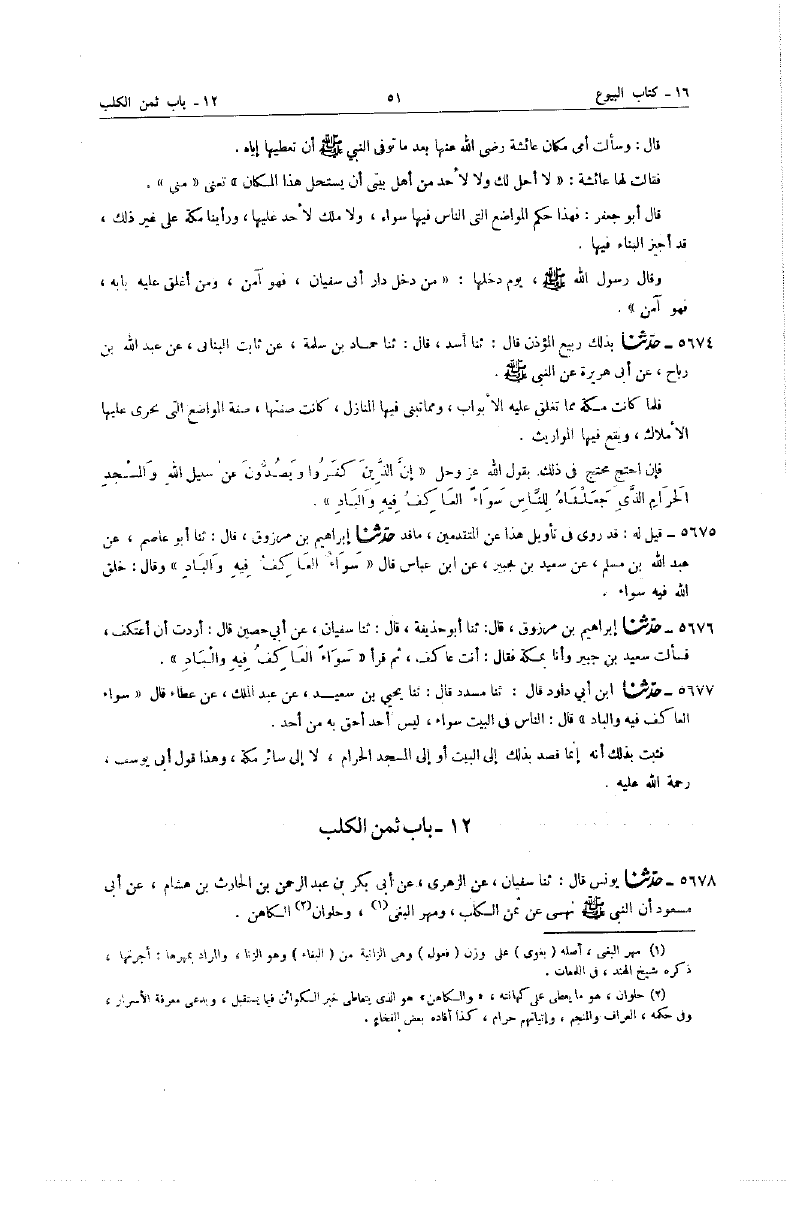 ١٦ - كتاب البيوع ٥١ ١٢ - باب ثمن الكلب
قال : وسألت أمى مكان عائشة رضى الله عنها بعد ما توفى النبي ﷺ أن تعطيها إياه .
فقالت لها عائشة : « لا أحل لك ولا لأحد من أهل بيتى أن يستحل هذا المكان » تعنى « منى » .
قال أبو جعفر : فهذا حكم المواضع التى الناس فيها سواء ، ولا ملك لأحد عليها ، ورأينا مكة على غير ذلك ،
قد أجيز البناء فيها .
وقال رسول الله ﷺ ، يوم دخلها : « من دخل دار أبى سفيان ، فهو آمن ، ومن أغلق عليه بابه ،
فهو آمن » .
٥٦٧٤ - حدثنا بذلك ربيع المؤذن قال : ثنا أسد ، قال : ثنا حماد بن سلمة ، عن ثابت البنانى ، عن عبد الله بن
رباح ، عن أبى هريرة عن النبي ﷺ .
فلما كانت مكة مما تغلق عليه الأبواب ، ومما تبنى فيها المنازل ، كانت صفتها ، صفة المواضع التى يجرى عليها
الأملاك ، ويقع فيها المواريث .
فإن احتج محتج فى ذلك بقول الله عز وجل « إِنَّ الَّذِينَ كَفَرُوا وَيَصُدُّونَ عَنْ سَبِيلِ اللهِ وَالْمَسْجِدِ
الْحَرَامِ الَّذِي جَعَلْنَاهُ لِلنَّاسِ سَوَاءً الْعَاكِفُ فِيهِ وَالْبَادِ » .
٥٦٧٥ - قيل له : قد روى فى تأويل هذا عن المتقدمين ، ماقد حدثنا إبراهيم بن مرزوق ، قال : ثنا أبو عاصم ، عن
عبد الله بن مسلم ، عن سعيد بن جبير ، عن ابن عباس قال « سَوَاءً الْعَاكِفُ فِيهِ وَالْبَادِ » وقال : خلق
الله فيه سواء .
٥٦٧٦ - حدثنا إبراهيم بن مرزوق ، قال : ثنا أبو حذيفة ، قال : ثنا سفيان ، عن أبي حصين قال : أردت أن أعتكف ،
فسألت سعيد بن جبير وأنا بمكة فقال : أنت عاكف ، ثم قرأ « سَوَاءً الْعَاكِفُ فِيهِ وَالْبَادِ » .
٥٦٧٧ - حدثنا ابن أبي داود قال : ثنا مسدد قال : ثنا يحيى بن سعيد ، عن عبد الملك ، عن عطاء قال « سواء
العاكف فيه والباد » قال : الناس فى البيت سواء ، ليس أحد أحق به من أحد .
فثبت بذلك أنه إنما قصد بذلك إلى البيت أو إلى المسجد الحرام ، لا إلى سائر مكة ، وهذا قول أبى يوسف ،
رحمة الله عليه .
١٢ - باب ثمن الكلب
٥٦٧٨ - حدثنا يونس قال : ثنا سفيان ، عن الزهرى ، عن أبي بكر بن عبد الرحمن بن الحارث بن هشام ، عن أبى
مسعود أن النبي ﷺ نهى عن ثمن الكلب ، ومهر البغى(١) ، وحلوان(٢) الكاهن .
(١) مهر البغى ، أصله ( بغوى ) على وزن ( فعول ) وهى الزانية من ( البغاء ) وهو الزنا ، والمراد بمهرها : أجرتها ،
ذكره شيخ الهند ، فى اللمعات .
(٢) حلوان ، هو ما يعطى على كهانته ، « والكاهن » هو الذى يتعاطى خبر الكوائن فيما يستقبل ، ويدعى معرفة الأسرار ،
وفى حكمه ، العراف والمنجم ، وإتيانهم حرام ، كذا أفاده بعض الفخام .